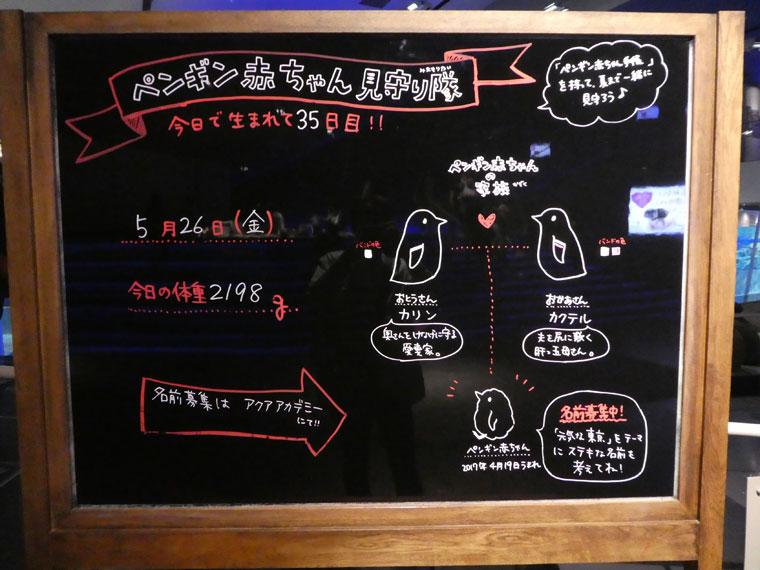 ペンギン赤ちゃん見守り隊
みまもりたい
今日で生まれて35日目!!
「ペンギン赤ちゃん手帳」
を持って、夏まで一緒に
見守ろう♪
ペンギン赤ちゃん
の
家族
かぞく
5月26日(金)
今日の体重2198g
バンドの色
バンドの色
おとうさん
カリン
奥さんをけなげに守る
愛妻家。
おかあさん
カクテル
夫を尻に敷く
肝っ玉母さん。
名前募集は アクアアカデミー
にて!!
ペンギン赤ちゃん
2017年4月19日うまれ
名前募集中!
「元気な東京」をテーマ
にステキな名前を
考えてね!